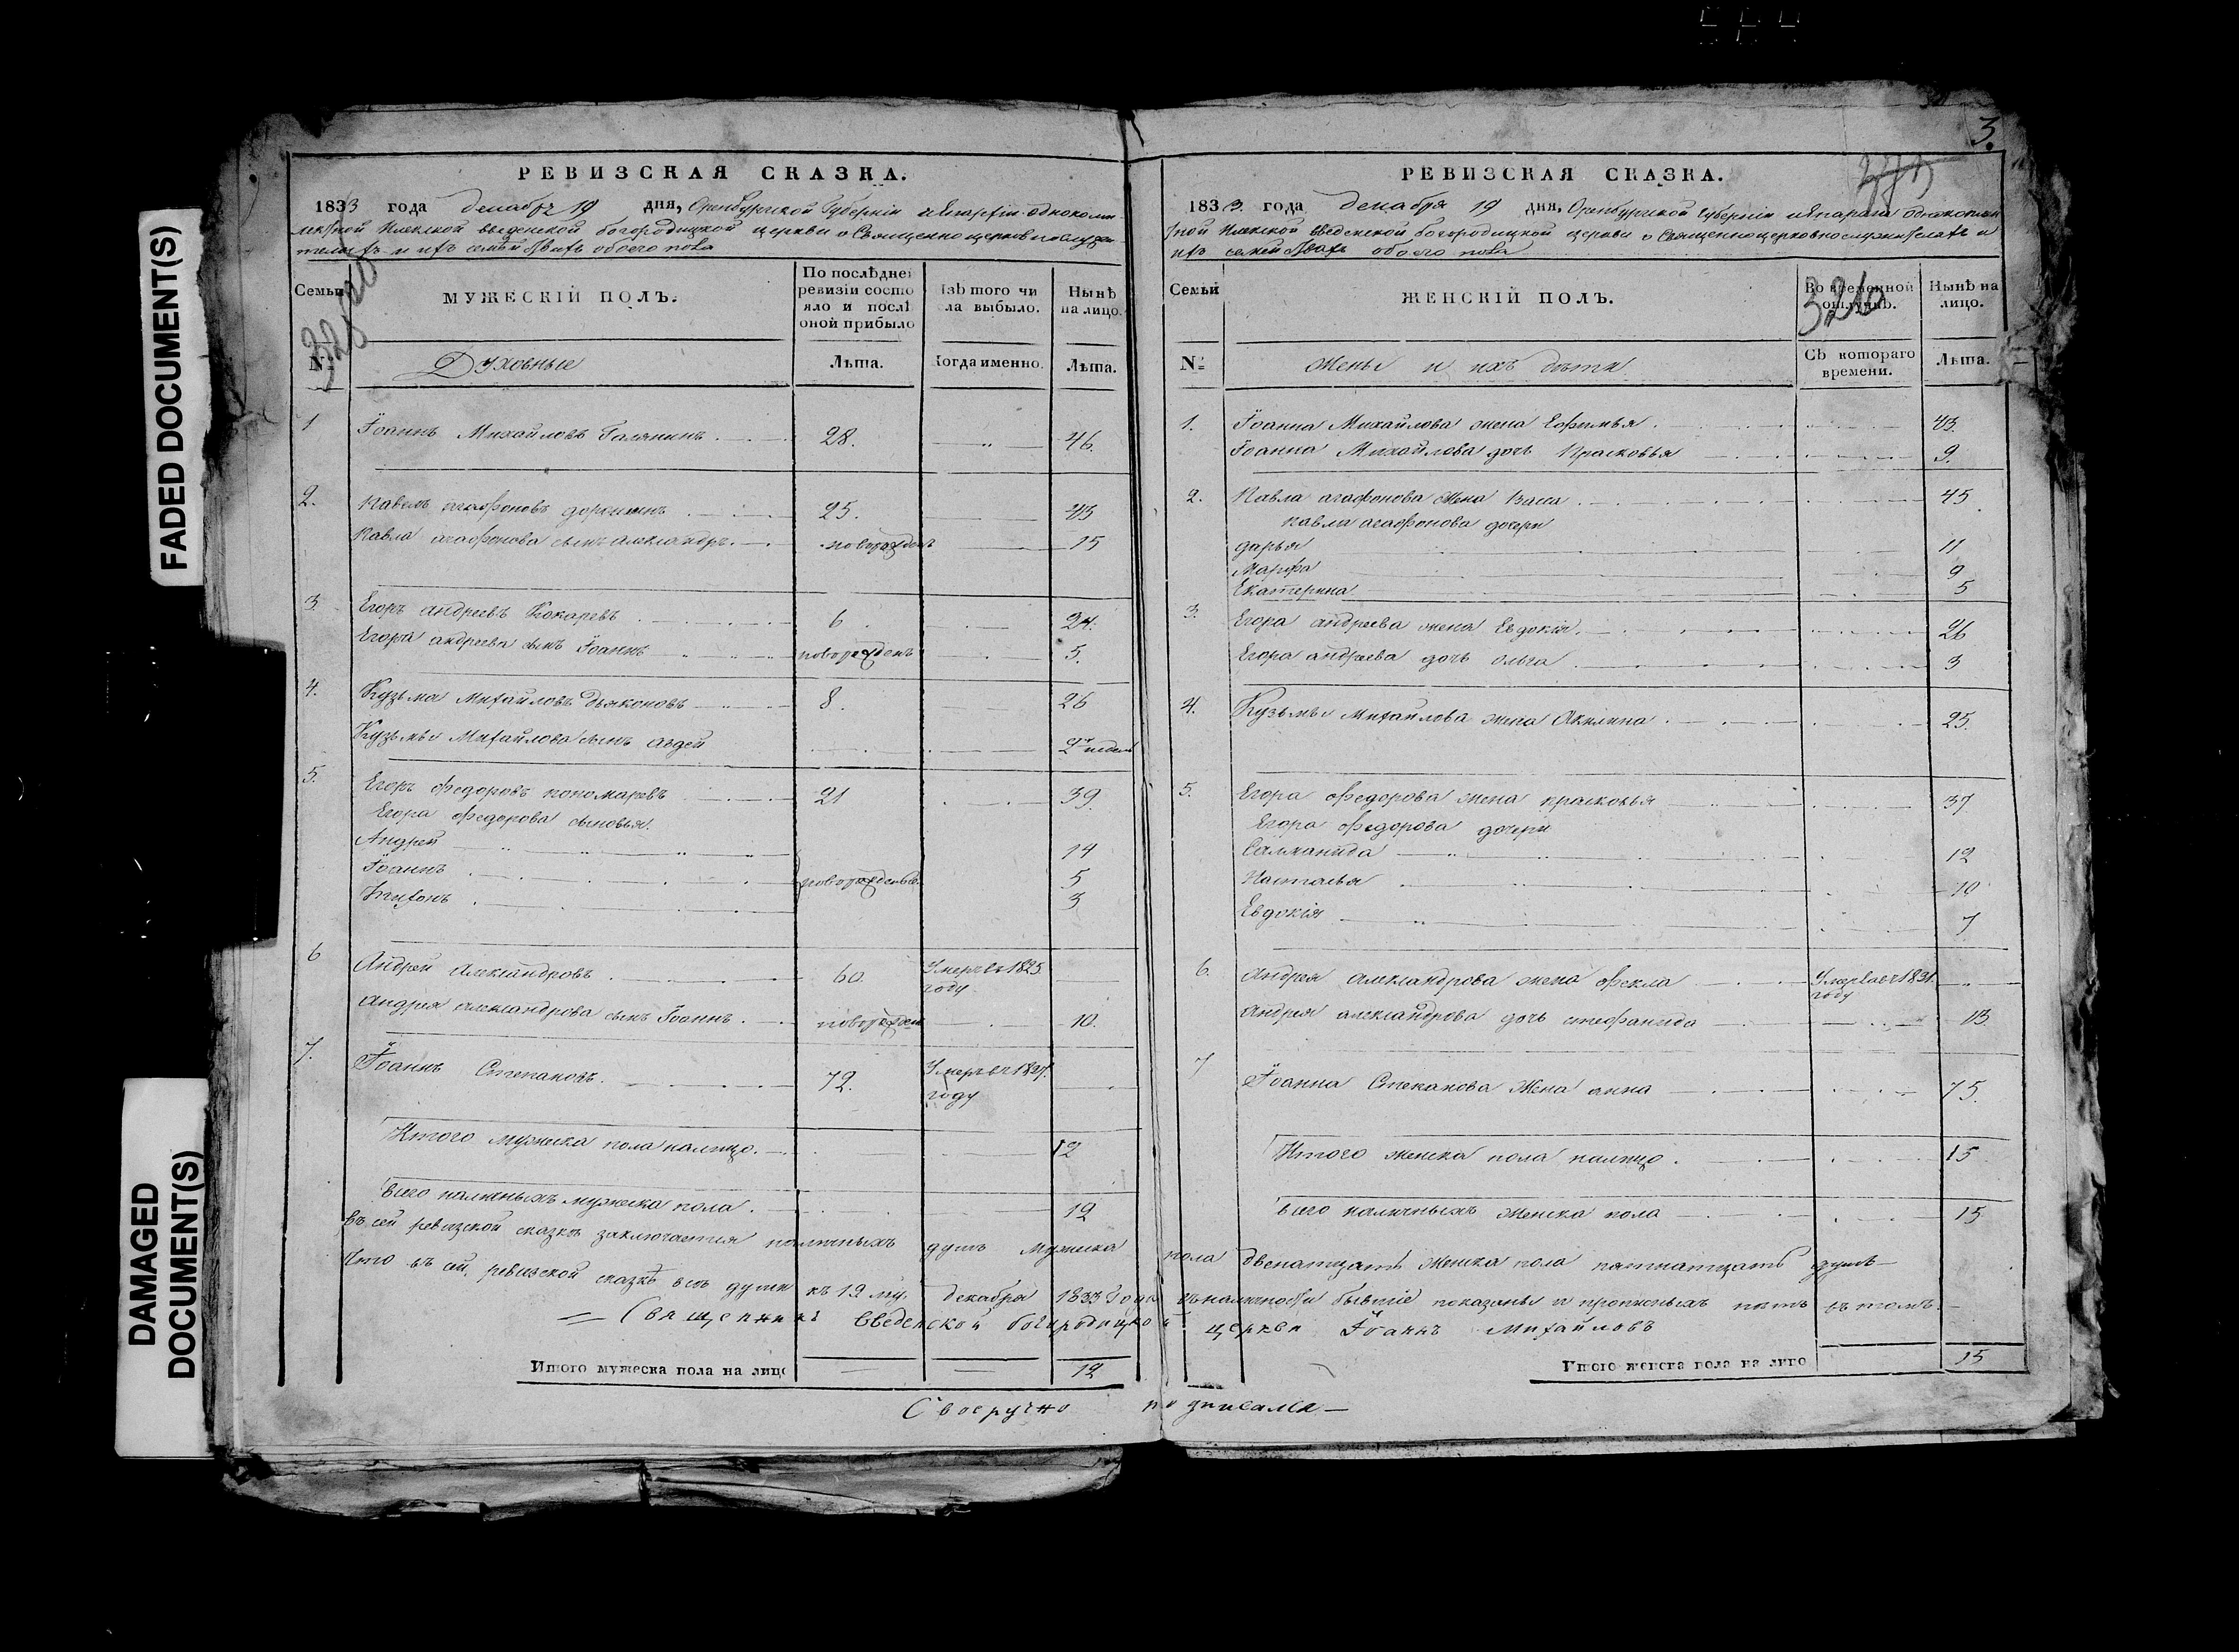 FADED DOCUMENT(S)
DAMAGED
DOCUMENT(S)
РЕВИЗСКАЯ СКАЗКА.
1833 года декабря 19 дня, Оренбургской Губернии
богородицкой церкви о Священноцерковнослужи-
обоего пола
Семьи
№
МУЖЕСКІЙ ПОЛЪ.
Духовные
По послѣдней
ревизіи состо
яло и послѣ
оной прибыло
Лѣта.
Изъ того чи
сла выбыло.
Когда именно.
Нынѣ
на лицо.
Лѣта.
1 Іоаннъ Михайловъ 28. 46.
2. Павелъ агафоновъ 25. 43
Павла агафонова сынъ александръ. новорожденъ 15
3. Егоръ андреевъ Кокаревъ 6. 24.
Егора андреева сынъ Іоаннъ новорожденъ 5.
4. Кузьма Михайловъ Дьяконовъ 8. 26
Кузьмы Михайлова сынъ авдей
5. Егоръ Федоровъ пономаревъ 21 39
Егора федорова сыновья.
Андрей 14
Іоаннъ новорожденые. 5
3
6 Андрей александровъ 60. Умеръ въ 1825.
году
андрея александрова сынъ Іоаннъ. новорожден 10.
7. Іоаннъ Степановъ. 72. Умеръ въ
году
Итого мужеска пола налицо. 12
всего наличныхъ мужеска пола. 12
въ сей ревизской сказкѣ заключается наличныхъ душъ мужеска пола двенатцать женска пола пятнатцать душъ
Что въ сей ревизской сказкѣ всѣ души къ 19 му. декабря 1833 Года въ наличности бывшіе показаны и прописныхъ нѣтъ въ томъ.
Священникъ Введенской богородицкой церкви Іоаннъ Михайловъ
Итого мужеска пола на лицо 12
Своеручно подписался
3.
326
РЕВИЗСКАЯ СКАЗКА.
1833. года декабря 19 дня, Оренбургской Губернии
Введенской богородицкой церкви о Священноцерковнослужителяхъ и
ихъ обоего пола
Семьи
№
ЖЕНСКІЙ ПОЛЪ.
жены и ихъ дѣти
Во временной
отлучкѣ.
Съ котораго
времени.
Нынѣ на
лицо.
Лѣта.
1. Іоанна Михайлова жена Ефимья 43.
Іоанна Михайлова дочь Прасковья 9.
2. Павла агафонова жена Васса 45
павла агафонова дочери
дарья 11
Марфа 9
Екатерина 5
3. Егора андреева жена Евдокія 26
Егора андреева дочь ольга 3
4. Кузьмы Михайлова жена Акилина 25.
5. Егора федорова жена прасковья 37
Егора федорова дочери
12
Настасья 10
Евдокія 7
6. андрея александрова жена фекла 1831.
году
андрея александрова дочь стефанида 13.
7 Іоанна Степанова Жена анна 75.
Итого женска пола налицо. 15
всего наличныхъ женска пола 15
Итого женска пола на лицо 15